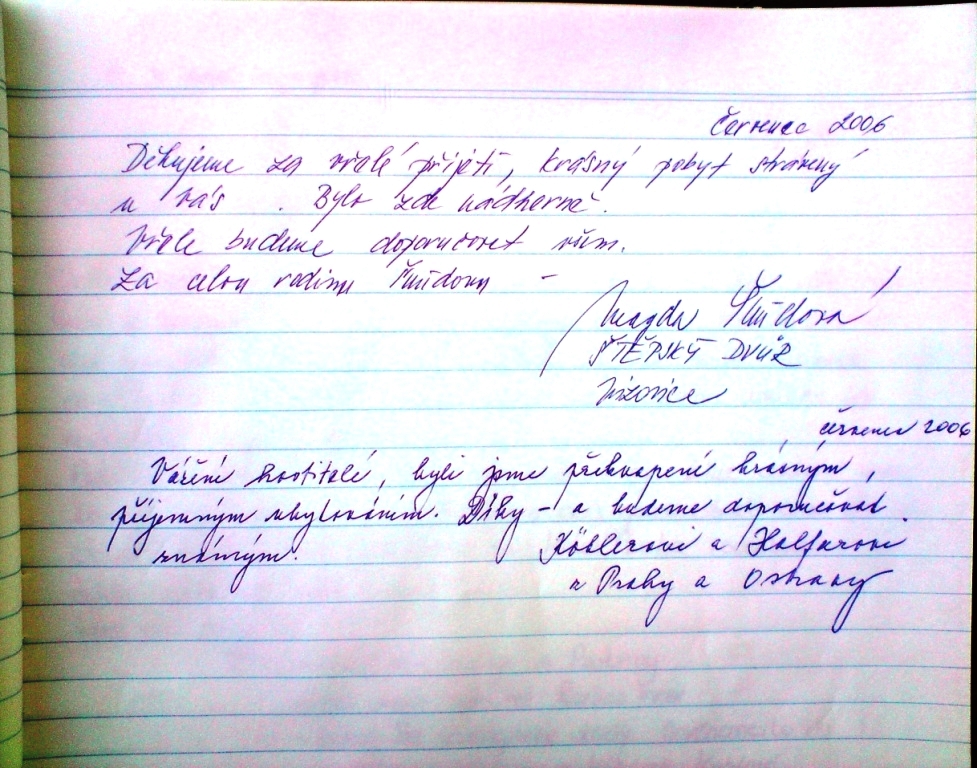 Červenec 2006
Děkujeme za vřelé přijetí, krásný pobyt strávený
u Vás . Bylo zde nádherně.
Vřele budeme doporučovat všem.
Za celou rodinu Šmídovu –
Magda Šmídová
ŠTĚPSKÝ DVŮR
Vizovice
červenec 2006
Vážení hostitelé, byli jsme překvapeni krásným,
příjemným ubytováním. Díky – a budeme doporučovat
známým. Köhlerovi a Halfarovi
z Prahy a Ostravy